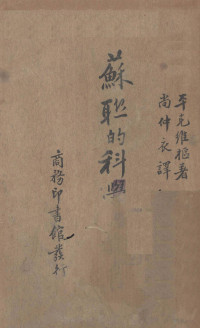 平克維枢著
尚仲衣譯
蘇聯的科學
商務印書館發行